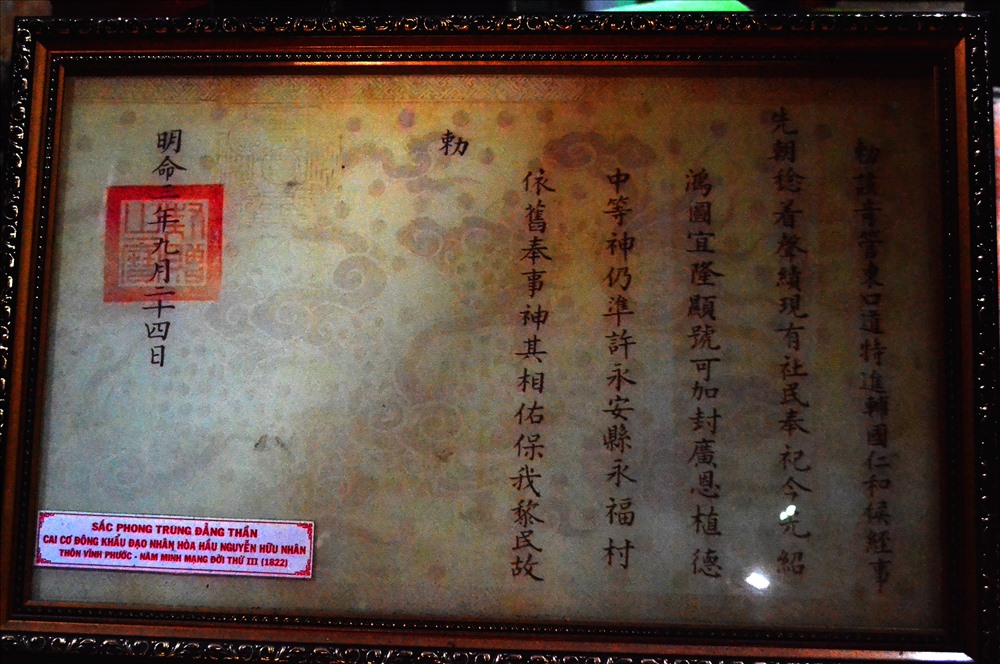 勅該奇管東口道特進輔國仁和侯經事
先朝稔着聲績現有社民奉祀今光紹
鴻圖宜隆顯號可加封廣恩植德
中等神仍準許永安縣永福村
依舊奉事神其相佑保我黎民故
勅
明命三年九月二十四日
SẮC PHONG TRUNG ĐẲNG THẦN
CAI CƠ ĐÔNG KHẨU ĐẠO NHÂN HÒA HẦU NGUYỄN HỮU NHÂN
THÔN VĨNH PHƯỚC - NĂM MINH MẠNG ĐỜI THỨ III (1822)